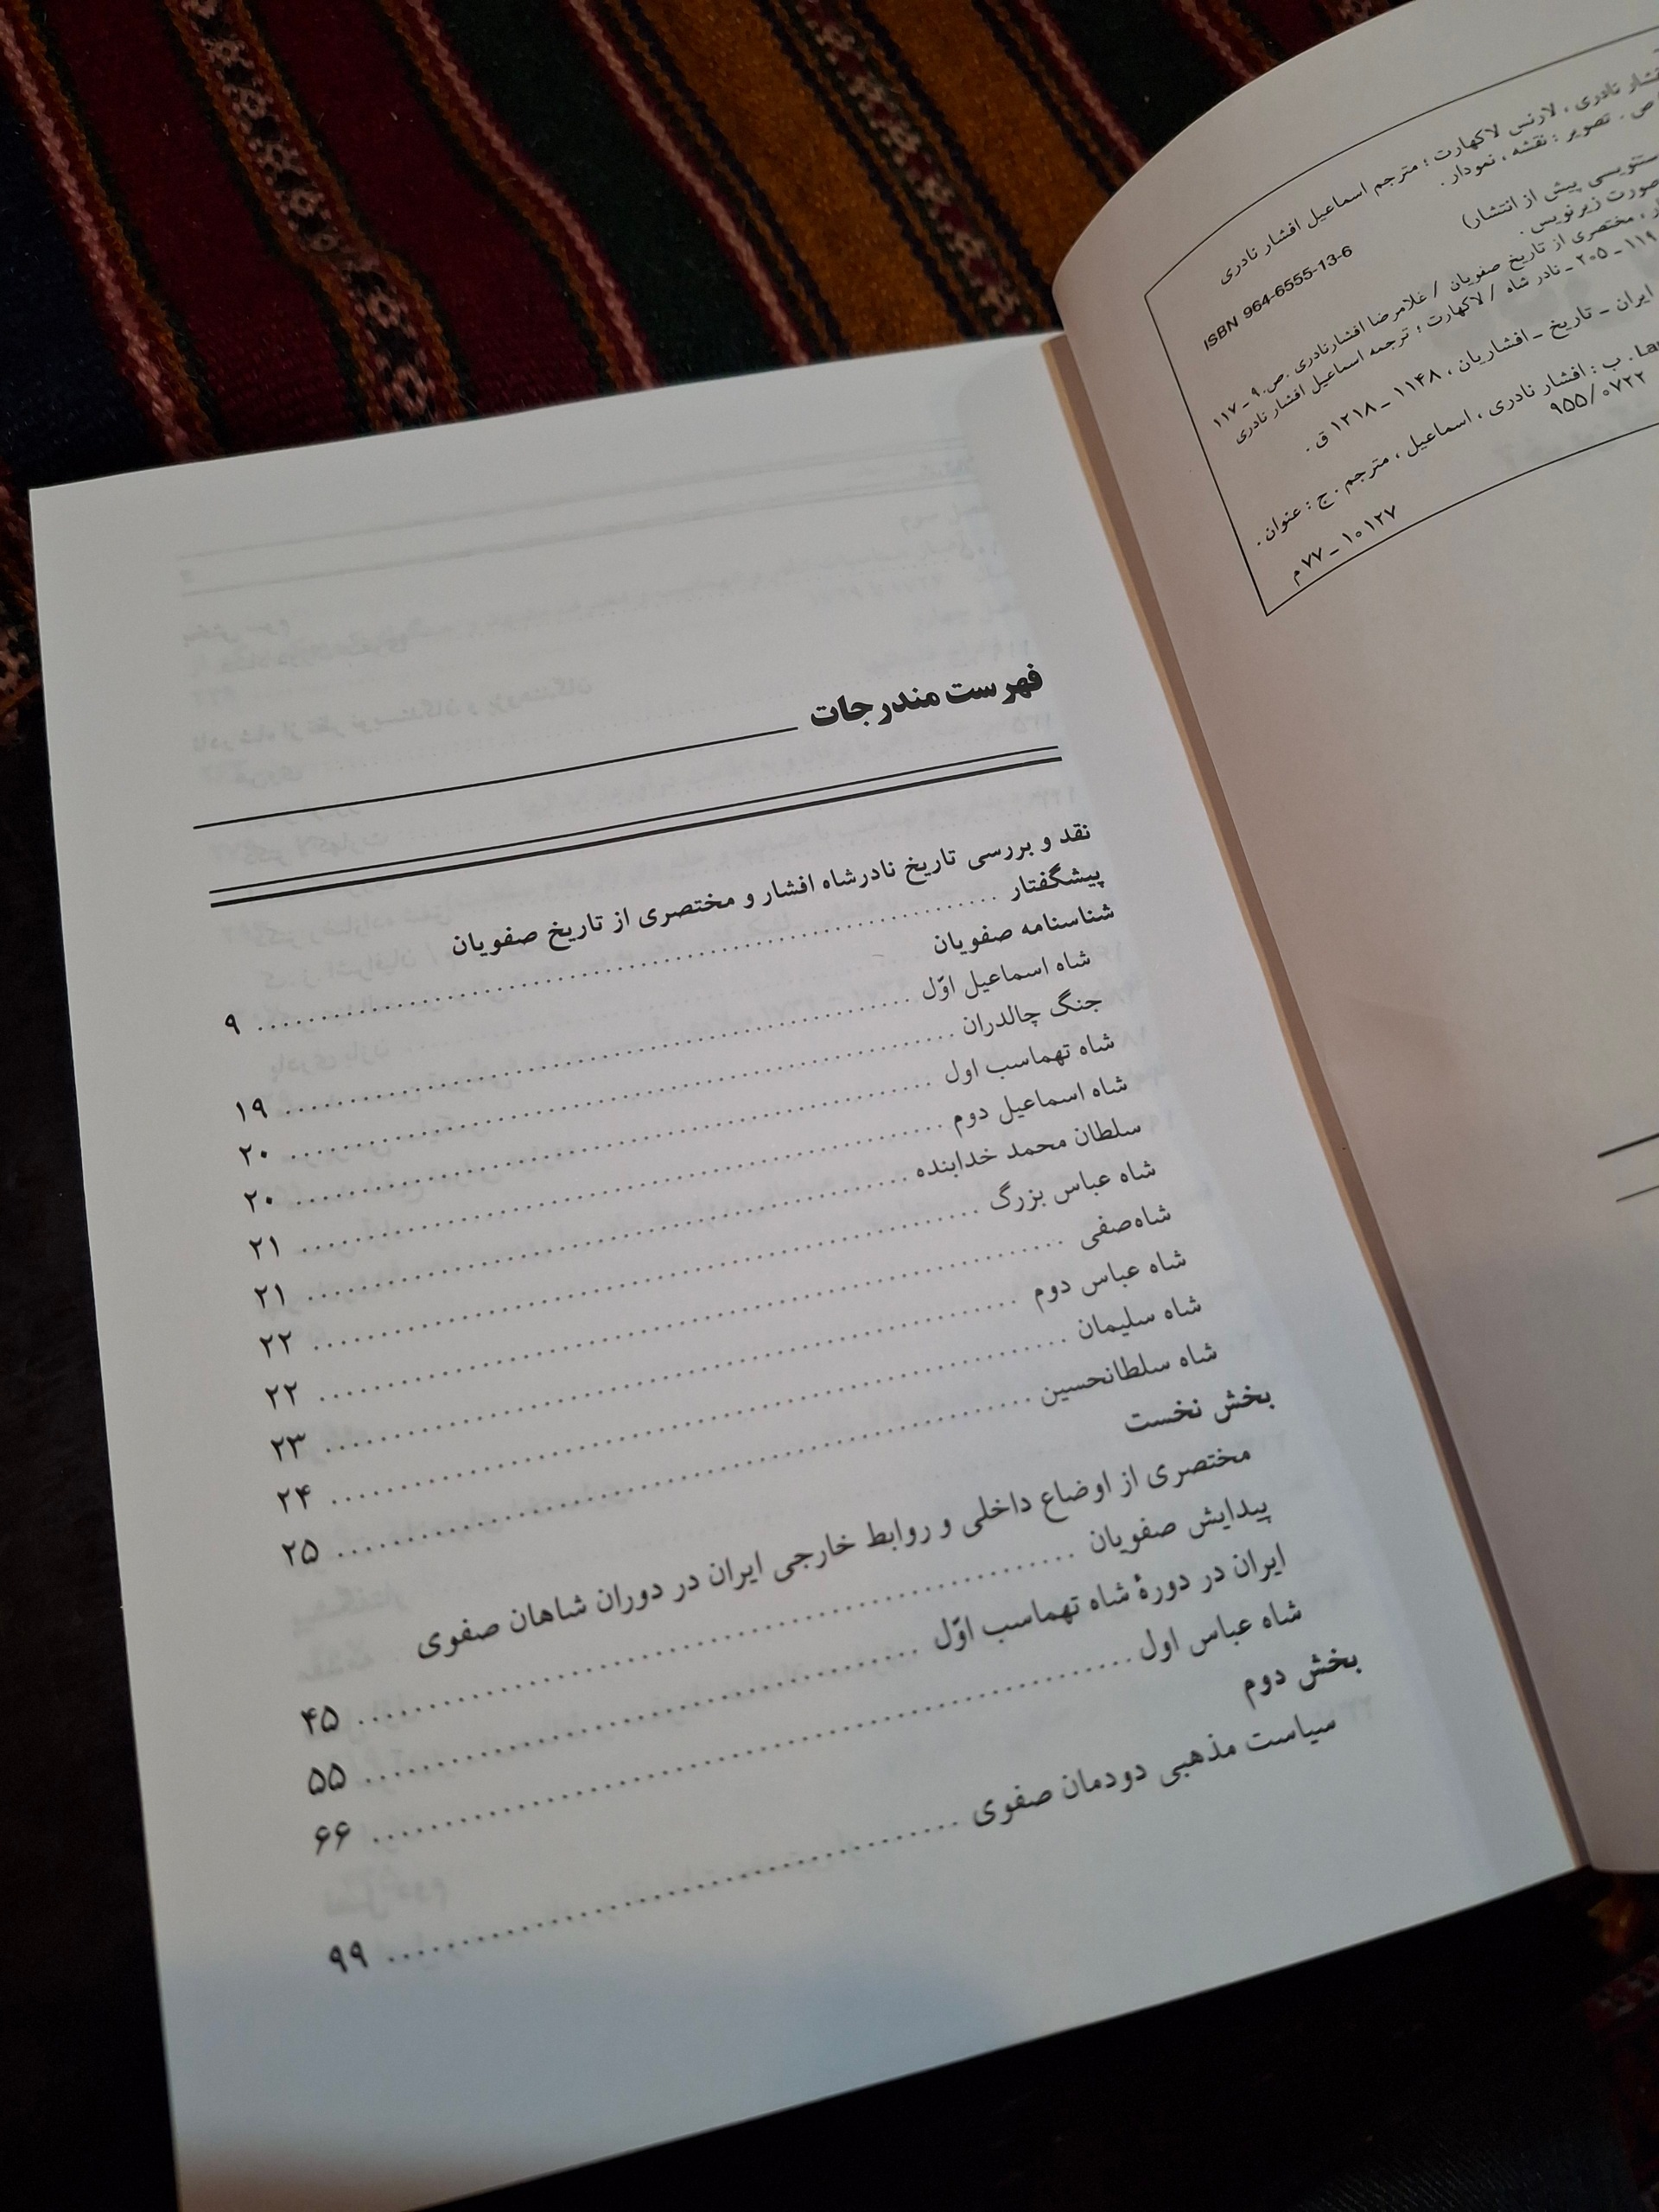 افشار نادری ، لارنس لاکهارت ؛ مترجم اسماعیل افشار نادری
ص . تصویر : نقشه ، نمودار .
ISBN 964-6555-13-6
پیش از انتشار)
صورت زیرنویس .
مختصری از تاریخ صفویان / غلامرضا افشارنادری .ص. ۹ ـ ۱۱۷
۱۱۹ ـ ۲۰۵ ـ نادر شاه / لاکهارت ؛ ترجمه اسماعیل افشار نادری
ایران ـ تاریخ ـ افشاریان ، ۱۱۴۸ ـ ۱۲۱۸ ق .
ب : افشار نادری ، اسماعیل ، مترجم . ج : عنوان .
۹۵۵/۰۷۲۲
۱۰۱۲۷ ـ ۷۷ م
فهرست مندرجات
نقد و بررسی تاریخ نادرشاه افشار و مختصری از تاریخ صفویان
پیشگفتار ........ ۹
شناسنامه صفویان
شاه اسماعیل اوّل ........ ۱۹
جنگ چالدران ........ ۲۰
شاه تهماسب اول ........ ۲۰
شاه اسماعیل دوم ........ ۲۱
سلطان محمد خدابنده ........ ۲۱
شاه عباس بزرگ ........ ۲۲
شاه‌صفی ........ ۲۲
شاه عباس دوم ........ ۲۳
شاه سلیمان ........ ۲۴
شاه سلطانحسین ........ ۲۵
بخش نخست
مختصری از اوضاع داخلی و روابط خارجی ایران در دوران شاهان صفوی
پیدایش صفویان ........ ۴۵
ایران در دورهٔ شاه تهماسب اوّل ........ ۵۵
شاه عباس اول ........ ۶۶
بخش دوم
سیاست مذهبی دودمان صفوی ........ ۹۹